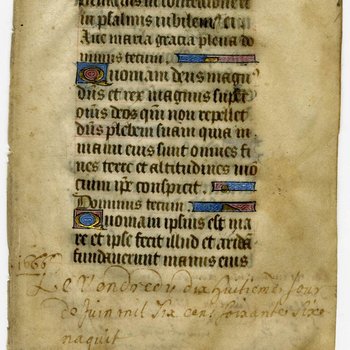 in psalmis iubilem' ei
Aue maria gracia plena do
minus tecum.
Quoniam deus magn'
dñs et rex magnus super
oms deos qm̃ non repellet
dñs plebem suam quia in
manu eius sunt omnes fi
nes terre et altitudines mo
cium ip̃e conspicit.
Dominus tecum
Quoniam ipsius est ma
re et ipse fecit illud et aridã
fundauerunt manus eius
1666
Le Vendredy dix huitieme jour
de juin mil six cens soixante sixe
naquit